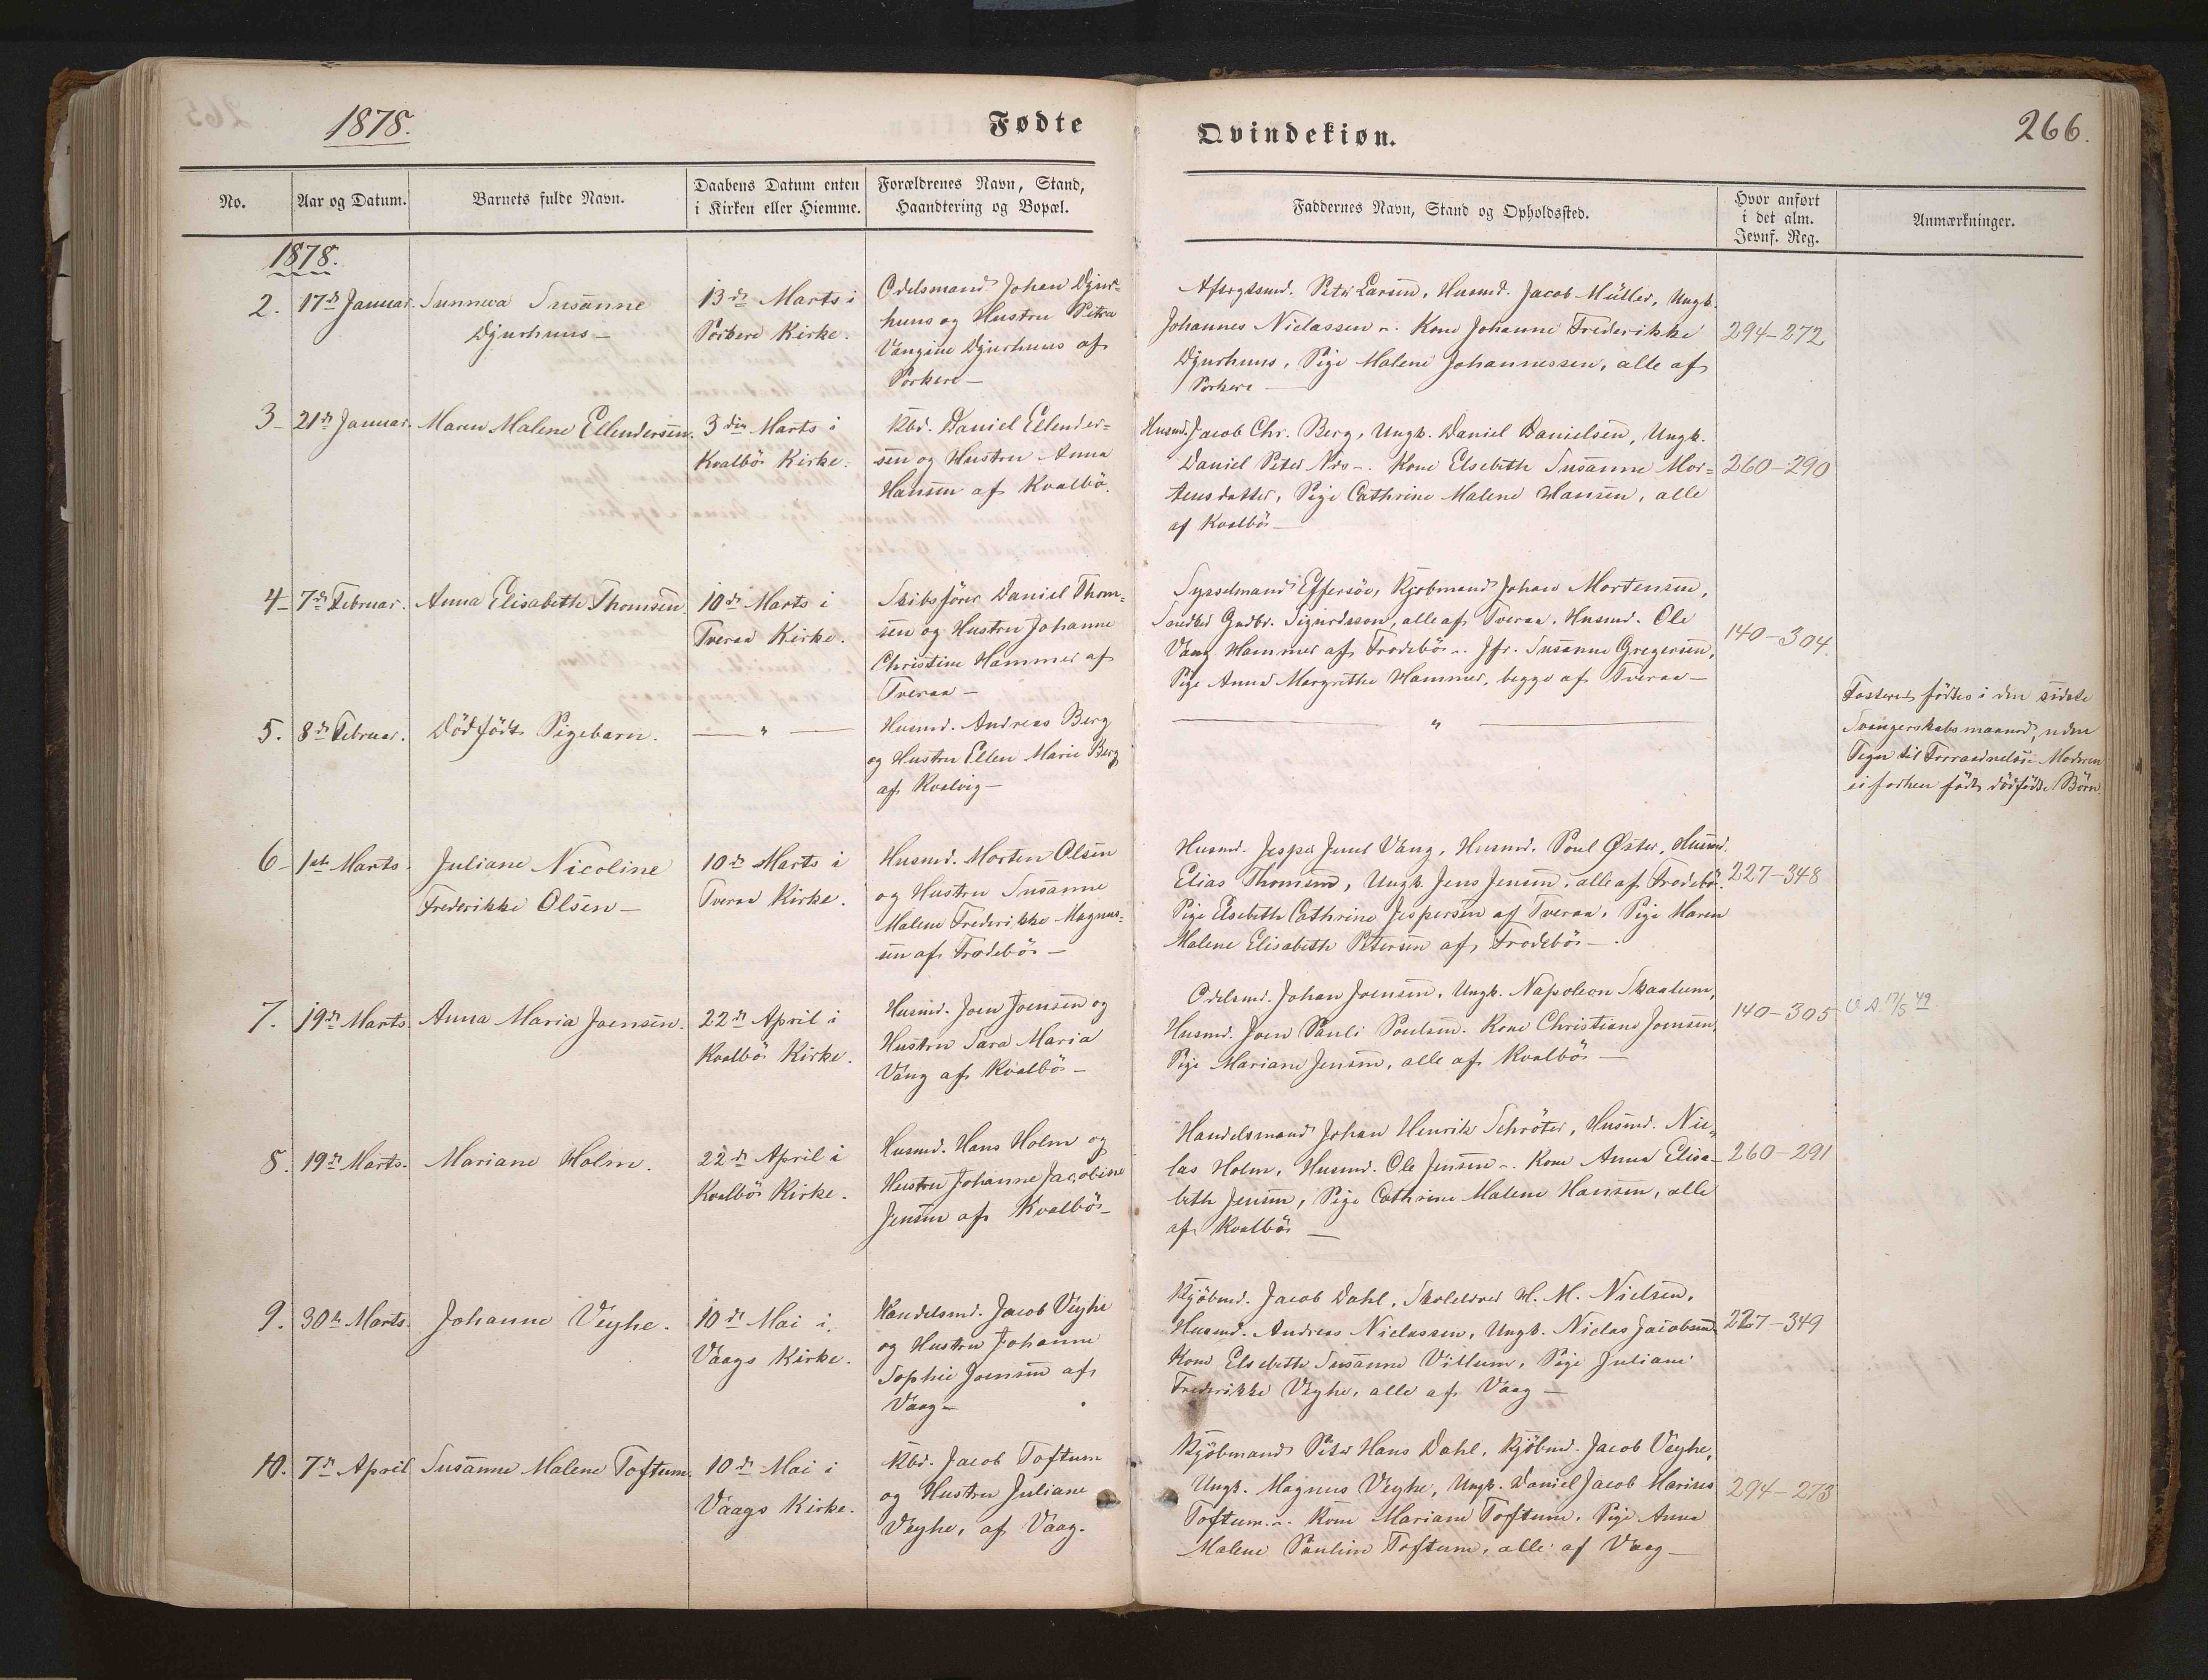 1878.
Fødte
Qvindekiøn.
266.
No.
Aar og Datum.
Barnets fulde Navn.
Daabens Datum enten
i Kirken eller Hiemme.
Forældrenes Navn, Stand,
Haandtering og Bopæl.
Faddernes Navn, Stand og Opholdssted.
Hvor anført
i det alm.
Jevnf. Reg.
Anmærkninger.
1878.
2. 17de Januar. Sunneva Susanne
Djurhuus-
13de Marts i
Porkere Kirke.
Odelsmand Johan Djur-
huus og Hustru Petra
Vangine Djurhuus af
Porkere-
Aftægtsmd. Peter Larsen, Husmd. Jacob Müller, Ungk.
Johannes Niclassen -. Kone Johanne Frederikke
Djurhuus, Pige Malene Johannessen, alle af
Porkere-
294-272
3- 21de Januar. Maren Malene Ellendersen.
3die Marts i
Kvalbö Kirke.
Kbd. Daniel Ellender=
sen og Hustru Anna
Hansen af Kvalbö.
Husmd. Jacob Chr. Berg, Ungk. Daniel Danielsen, Ungk.
Daniel Peter Nos-. Kone Elsebeth Susanne Mor=
tensdatter, Pige Cathrine Malene Hansen, alle
af Kvalbö-
260-290
4- 7de Februar. Anna Elisabeth Thomsen.
10de Marts i
Tveraa Kirke.
Skibsfører Daniel Thom=
sen og Hustru Johanne
Christine Hammer af
Tveraa-
Sysselmand Effersöe, Kjøbmand Johan Mortensen,
Snedker Gudbr. Sigurdsson, alle af Tveraa. Husmd. Ole
Vang Hammer af Frodebö-. Jfr. Susanne Gregersen,
Pige Anna Margrethe Hammer, begge af Tveraa-
140-304.
5. 8de Februar. Dödfödt Pigebarn.
- " -
Husmd. Andreas Berg
og Hustru Ellen Marie Berg
af Kvalvig-
- " -
Fosteret födtes i den sidste
Svangerskabsmaaned, uden
Tegn til Forraadnelse. Moderen
ei forhen födt dödfödte Börn.
6- 1ste Marts. Juliane Nicoline
Frederikke Olsen-
10de Marts i
Tveraa Kirke.
Husmd. Morten Olsen
og Hustru Susanne
Malene Frederikke Magnus=
sen af Frodebö-
Husmd. Jesper Juul Vang, Husmd. Poul Øster, Husmd.
Elias Thomsen, Ungk. Jens Jensen, alle af Frodebö.
Pige Elsebeth Cathrine Jespersen af Tveraa, Pige Maren
Malene Elisabeth Petersen af Frodebö-.
227-348
7. 19de Marts. Anna Maria Joensen.
22de April i
Kvalbö Kirke.
Husmd. Joen Joensen og
Hustru Sara Maria
Vang af Kvalbö-
Odelsmd. Johan Joensen, Ungk. Napoleon Skaalum,
Husmd. Joen Pauli Poulsen. Kone Christiane Joensen,
Pige Mariane Jensen, alle af Kvalbö-
140-305
8. 19de Marts. Mariane Holm.
22de April i
Kvalbö Kirke.
Husmd. Hans Holm og
Hustru Johanne Jacobine
Jensen af Kvalbö-
Handelsmand Johan Henrik Schröter, Husmd. Nic-
las Holm, Husmd. Ole Jensen-. Kone Anna Elisa-
beth Jensen, Pige Cathrine Malene Hansen, alle
af Kvalbö-
260-291
9. 30te Marts. Johanne Veyhe.
10de Mai i
Vaags Kirke.
Handelsmd. Jacob Veyhe
og Hustru Johanne
Sophie Joensen af
Vaag-
Kjöbmd. Jacob Dahl, Skolelærer H. M. Nielsen,
Husmd. Andreas Niclassen, Ungk. Niclas Jacobsen.
Kone Elsebeth Susanne Villum, Pige Juliane
Frederikke Veyhe, alle af Vaag-
227-349
10. 7de April Susanne Malene Toftum.
10de Mai i
Vaags Kirke.
Kbd. Jacob Toftum
og Hustru Juliane
Veyhe, af Vaag.
Kjöbmand Peter Hans Dahl, Kjöbmd. Jacob Veyhe,
Ungk. Magnus Veyhe, Ungk. Daniel Jacob Marius
Toftum-. Kone Mariane Toftum, Pige Anna
Malene Pauline Toftum, alle af Vaag-
294-273